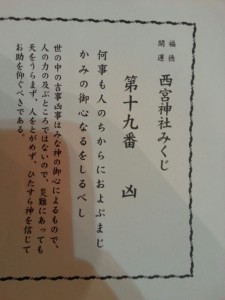 福徳
開運
西宮神社みくじ
第十九番 凶
何事も人のちからにおよぶまじ
かみの御心なるをしるべし
世の中の吉事凶事はみな神の御心によるもので、
人の力の及ぶところではないので、災難にあっても
天をうらまず、人をとがめず、ひたすら神を信じて
お助を仰ぐべきである。